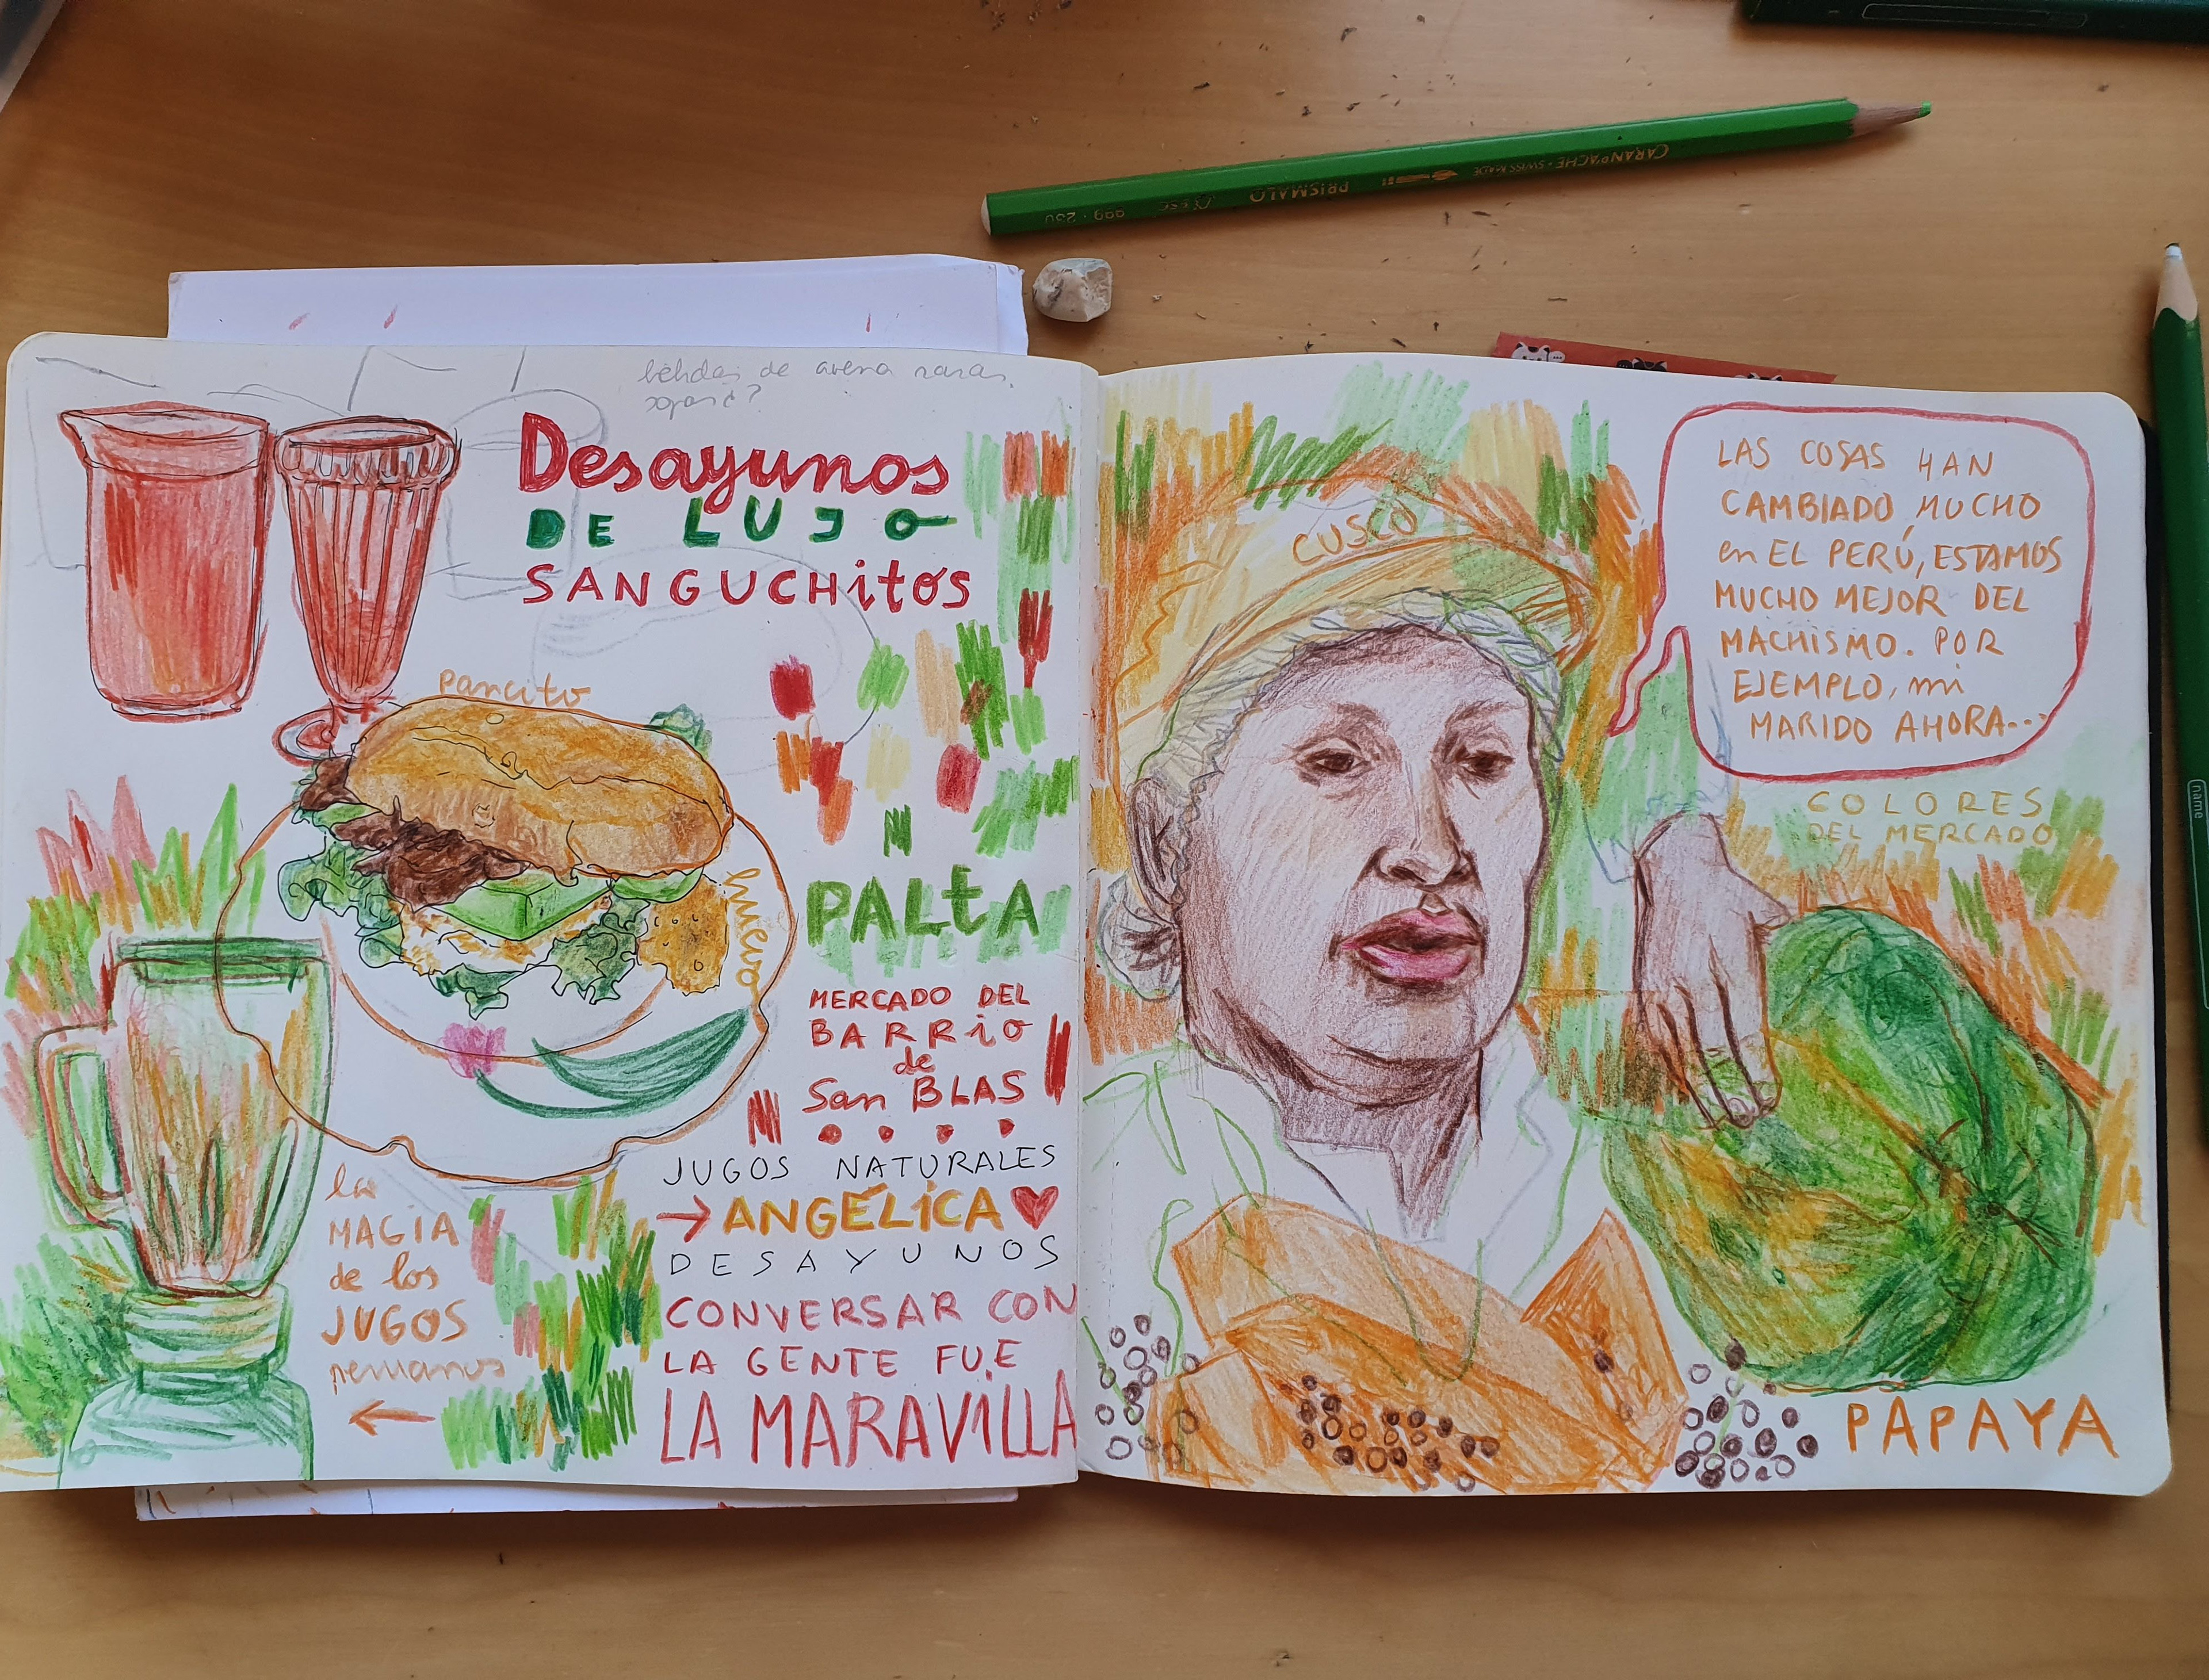 CARAN D'ACHE · SWISS MADE
PRISMALO
999 · 230
name
bebidas de avena raras
Desayunos
DE LUJO
SANGUCHitos
pancito
huevo
PALtA
MERCADO DEL
BARRiO
de
San BLAS
JUGOS NATURALES
→ ANGÉLiCA ♥
DESAYUNOS
CONVERSAR CON
LA GENTE FUE
LA MARAViLLA
la
MAGIA
de los
JUGOS
peruanos
←
CUSCO
LAS COSAS HAN
CAMBIADO MUCHO
en EL PERÚ, ESTAMOS
MUCHO MEJOR DEL
MACHISMO. POR
EJEMPLO, mi
MARIDO AHORA...
COLORES
DEL MERCADO
PAPAYA